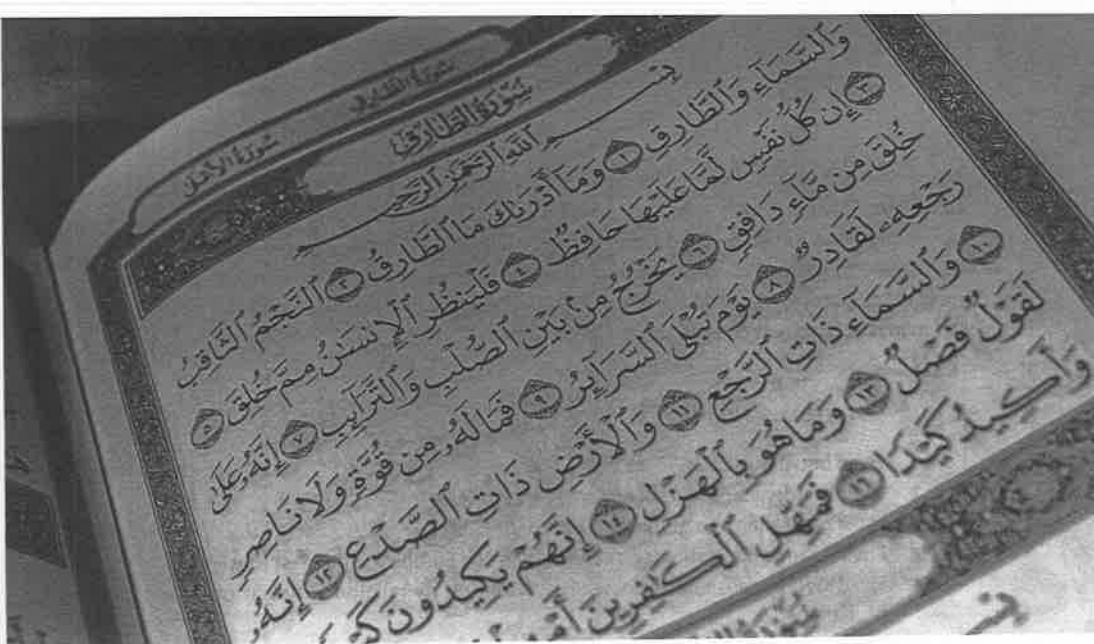 سُورَةُ الطَّارِقِ
سُورَةُ الطَّارِقِ
بِسْمِ ٱللَّهِ ٱلرَّحْمَٰنِ ٱلرَّحِيمِ
وَٱلسَّمَآءِ وَٱلطَّارِقِ ١ وَمَآ أَدْرَىٰكَ مَا ٱلطَّارِقُ ٢ ٱلنَّجْمُ ٱلثَّاقِبُ
٣ إِن كُلُّ نَفْسٍ لَّمَّا عَلَيْهَا حَافِظٌ ٤ فَلْيَنظُرِ ٱلْإِنسَٰنُ مِمَّ خُلِقَ ٥
خُلِقَ مِن مَّآءٍ دَافِقٍ ٦ يَخْرُجُ مِنۢ بَيْنِ ٱلصُّلْبِ وَٱلتَّرَآئِبِ ٧ إِنَّهُۥ عَلَىٰ
رَجْعِهِۦ لَقَادِرٌ ٨ يَوْمَ تُبْلَى ٱلسَّرَآئِرُ ٩ فَمَا لَهُۥ مِن قُوَّةٍ وَلَا نَاصِرٍ
١٠ وَٱلسَّمَآءِ ذَاتِ ٱلرَّجْعِ ١١ وَٱلْأَرْضِ ذَاتِ ٱلصَّدْعِ ١٢ إِنَّهُۥ
لَقَوْلٌ فَصْلٌ ١٣ وَمَا هُوَ بِٱلْهَزْلِ ١٤ إِنَّهُمْ يَكِيدُونَ
وَأَكِيدُ كَيْدًا ١٦ فَمَهِّلِ ٱلْكَٰفِرِينَ